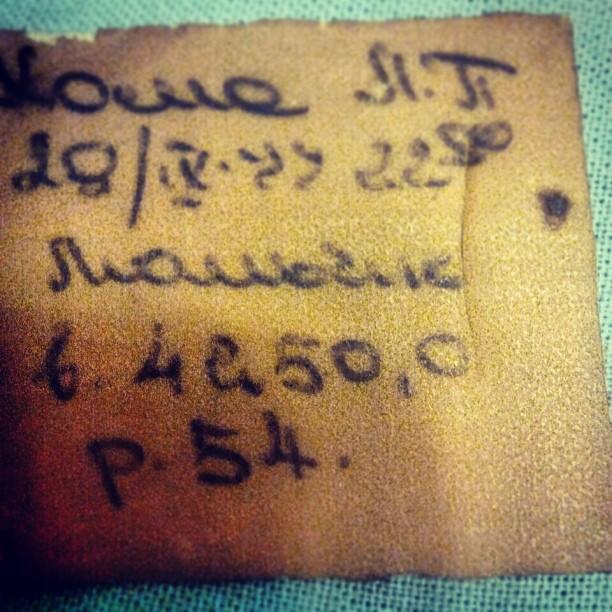 М.П
28/IV-77 22⁵⁰
Мальчик
в. 4250,0
р. 54.